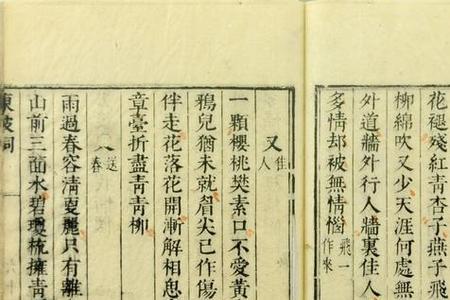 花褪殘紅青杏子燕子飛
柳綿吹又少天涯何處無
外道墻外行人墻裏佳人
多情却被無情惱飛一作來
又佳人
一顆櫻桃樊素口不愛黃
鴉兒猶未就眉尖已作傷
伴走花落花開漸解相思
章臺折盡青青柳
送春
雨過春容清更麗只有離
山前三面水碧瓊梳擁青
東坡詞